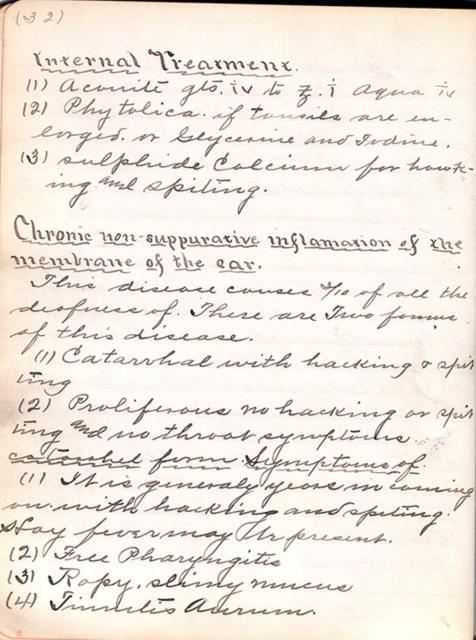 (32)
Internal Treatment.
(1) Aconite gts. iv to ℥. i Aqua iv
(2) Phytolica. if tonsils are en-
larged. or Glycerine and Iodine.
(3) sulphide Calcium for hawk-
ing and spiting.
Chronic non-suppurative inflamation of the
membrane of the ear.
This disease causes 9/10 of all the
deafness of. There are Two forms
of this disease.
(1) Catarrhal with hacking & spit
ting
(2) Proliferous no hacking or spit
ting and no throat symptoms.
catarrhel form Symptoms of.
(1) It is generaly years in coming
on. with hacking and spiting.
Hay fever may be present.
(2) Free Pharyngitis
(3) Ropy. slimy mucus
(4) Tinnitis Aurum.